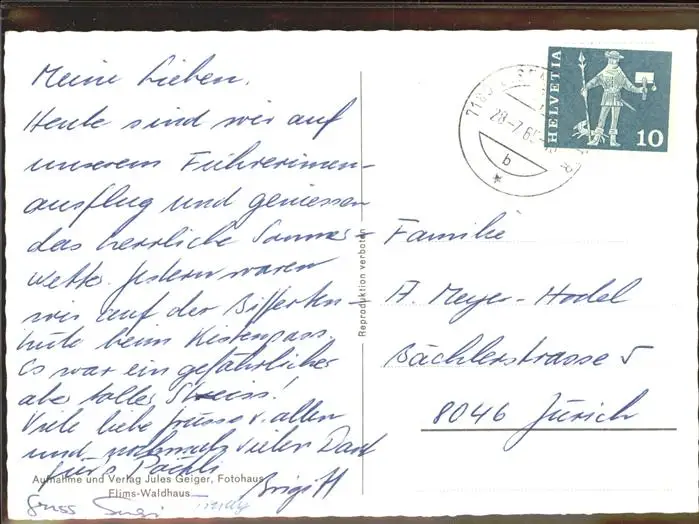 Meine Lieben.
Heute sind wir auf
unserem Führerinnen-
ausflug und geniessen
das herrliche Sommer-
wetter. Gestern waren
wir auf der Bifferten-
hütte beim Kistenpass.
Es war ein gefährlicher
aber toller Streiss!
Viele liebe Grüsse v. allen
und nochmals vielen Dank
fürs Päckli
Brigitt
Gruss Susi Trudy
Aufnahme und Verlag Jules Geiger, Fotohaus
Flims-Waldhaus
Reproduktion verboten
HELVETIA
10
28-7.6
b
Familie
A. Meyer-Hodel
Bächlerstrasse 5
8046 Zürich